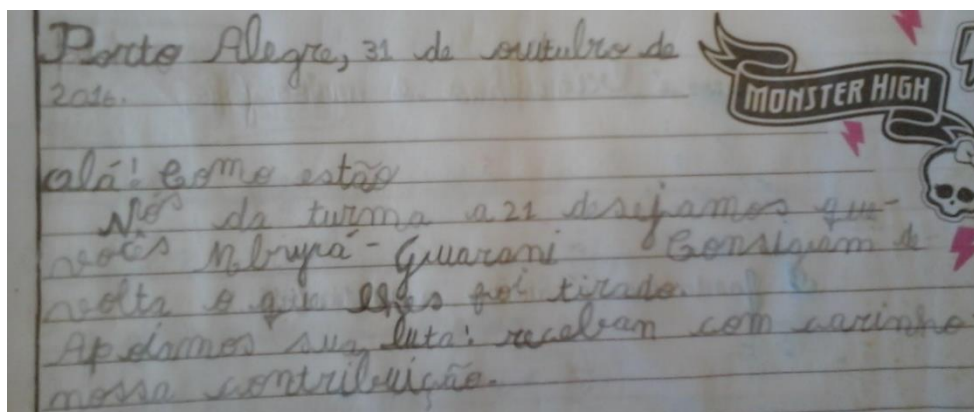 Porto Alegre, 31 de outubro de
2016.
MONSTER HIGH
olá! Como estão
Nós da turma a 21 desejamos que
vocês Mbyá-Guarani Consigam de
volta o que foi tirado.
Apoiamos sua luta: recebam com carinho
nossa contribuição.